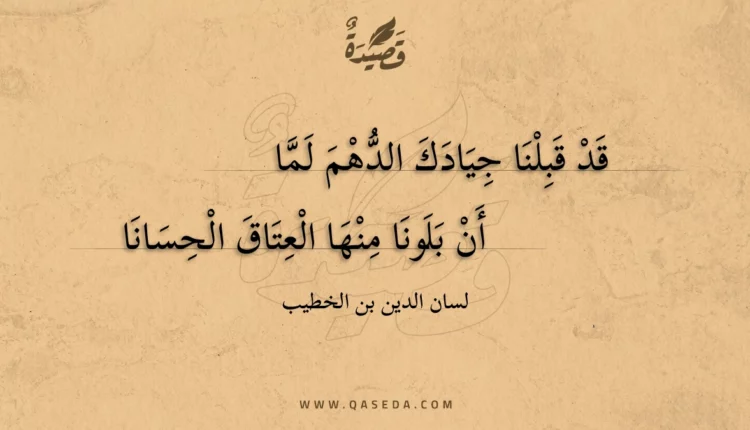 قَصِيْدَةٌ
قَدْ قَبِلْنَا جِيَادَكَ الدُّهْمَ لَمَّا
أَنْ بَلَونَا مِنْهَا الْعِتَاقَ الْحِسَانَا
لسان الدين بن الخطيب
WWW.QASEDA.COM